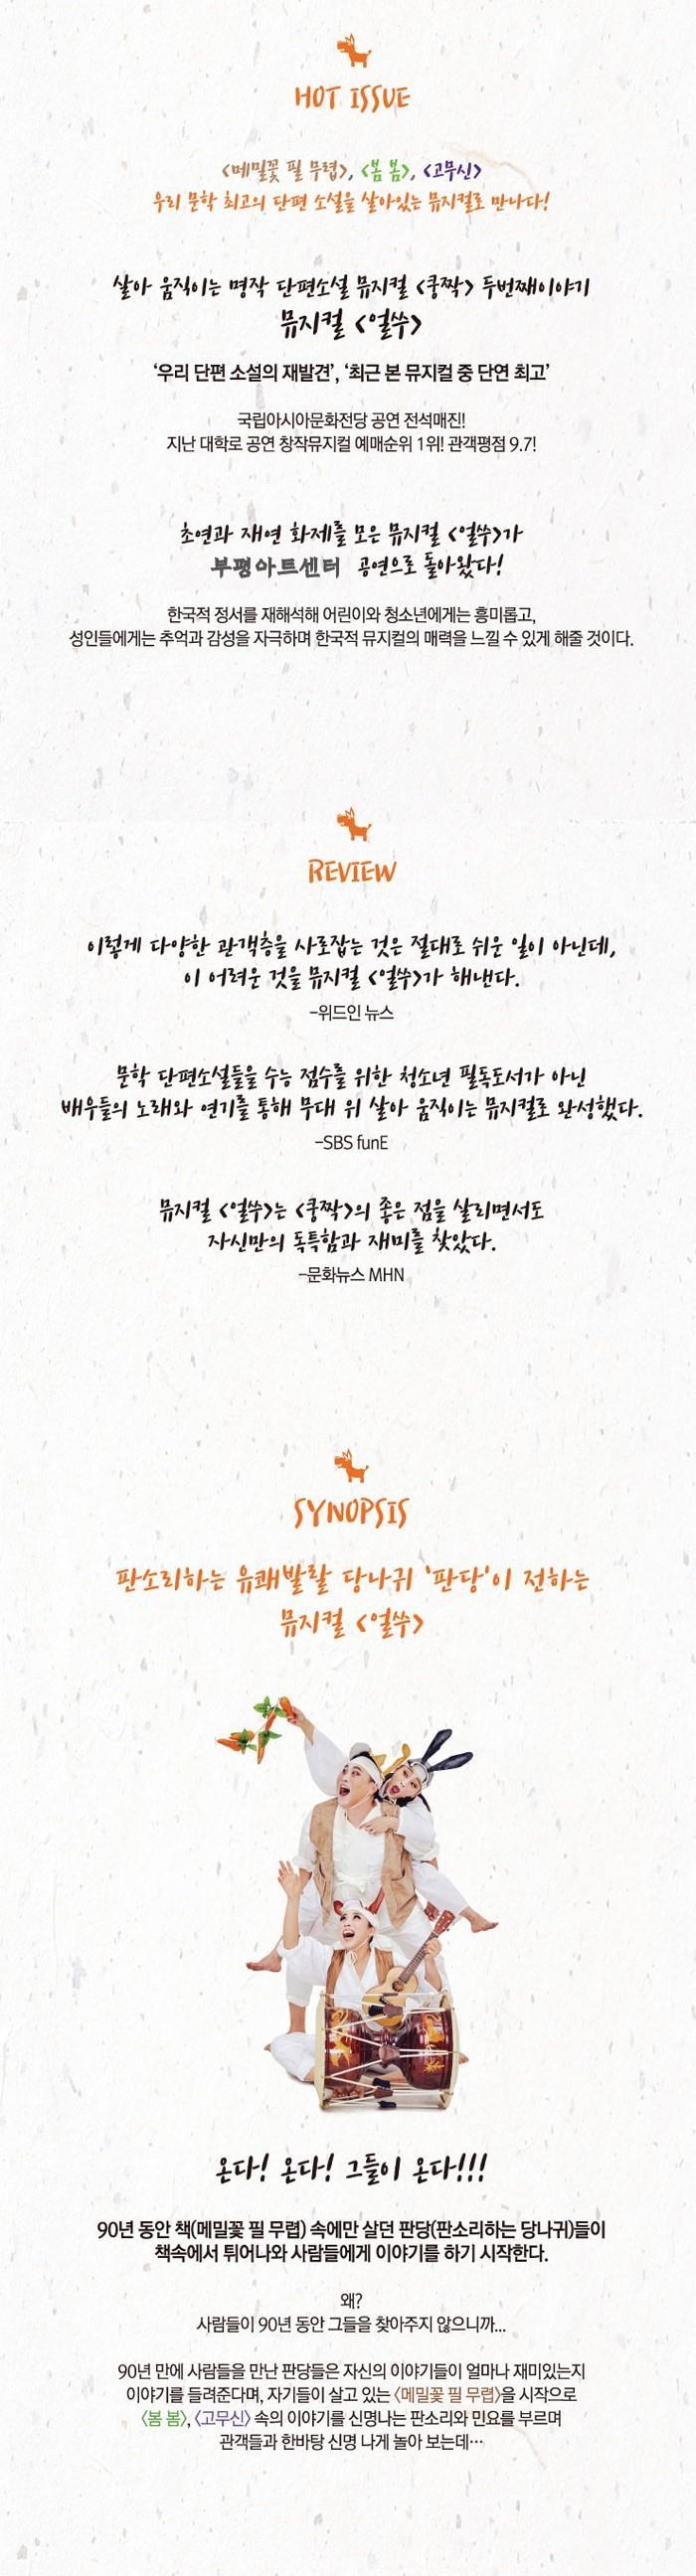 HOT ISSUE
<메밀꽃 필 무렵>, <봄 봄>, <고무신>
우리 문학 최고의 단편 소설을 살아있는 뮤지컬로 만나다!
살아 움직이는 명작 단편소설 뮤지컬 <쿵짝> 두번째이야기
뮤지컬 <얼쑤>
'우리 단편 소설의 재발견', '최근 본 뮤지컬 중 단연 최고'
국립아시아문화전당 공연 전석매진!
지난 대학로 공연 창작뮤지컬 예매순위 1위! 관객평점 9.7!
초연과 재연 화제를 모은 뮤지컬 <얼쑤>가
부평아트센터 공연으로 돌아왔다!
한국적 정서를 재해석해 어린이와 청소년에게는 흥미롭고,
성인들에게는 추억과 감성을 자극하며 한국적 뮤지컬의 매력을 느낄 수 있게 해줄 것이다.
REVIEW
이렇게 다양한 관객층을 사로잡는 것은 절대로 쉬운 일이 아닌데,
이 어려운 것을 뮤지컬 <얼쑤>가 해낸다.
-위드인 뉴스
문학 단편소설들을 수능 점수를 위한 청소년 필독도서가 아닌
배우들의 노래와 연기를 통해 무대 위 살아 움직이는 뮤지컬로 완성했다.
-SBS funE
뮤지컬 <얼쑤>는 <쿵짝>의 좋은 점을 살리면서도
자신만의 독특함과 재미를 찾았다.
-문화뉴스 MHN
SYNOPSIS
판소리하는 유쾌발랄 당나귀 '판당'이 전하는
뮤지컬 <얼쑤>
온다! 온다! 그들이 온다!!!
90년 동안 책(메밀꽃 필 무렵) 속에만 살던 판당(판소리하는 당나귀)들이
책속에서 튀어나와 사람들에게 이야기를 하기 시작한다.
왜?
사람들이 90년 동안 그들을 찾아주지 않으니까...
90년 만에 사람들을 만난 판당들은 자신의 이야기들이 얼마나 재미있는지
이야기를 들려준다며, 자기들이 살고 있는 <메밀꽃 필 무렵>을 시작으로
<봄 봄>, <고무신> 속의 이야기를 신명나는 판소리와 민요를 부르며
관객들과 한바탕 신명 나게 놀아 보는데…